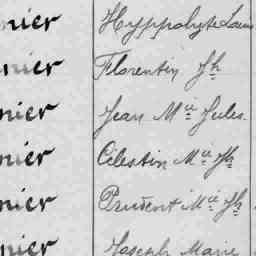 nier Hyppolyte Louis
nier Florentin Jh
nier Jean Mie Jules
nier Célestin Mie Jh
nier Prudent Mie Jh
nier Joseph Marie